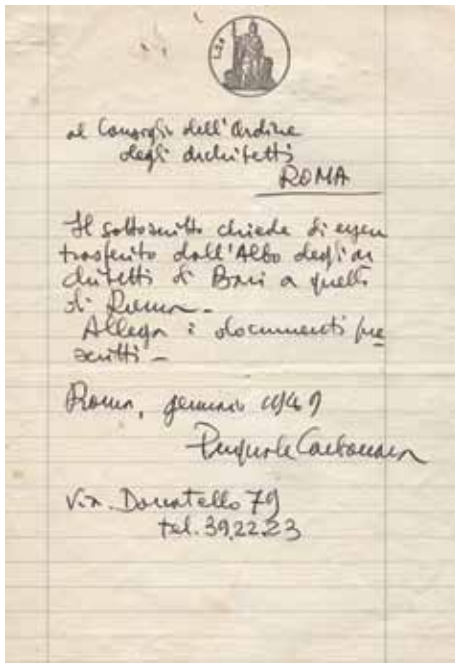 al Consiglio dell'Ordine
degli architetti
ROMA
Il sottoscritto chiede di esser
trasferito dall'Albo degli ar
chitetti di Bari a quello
di Roma -
Allega i documenti pre
scritti -
Roma, gennaio 1949
Pasquale Carbonara
Via Donatello 79
tel. 39.22.23